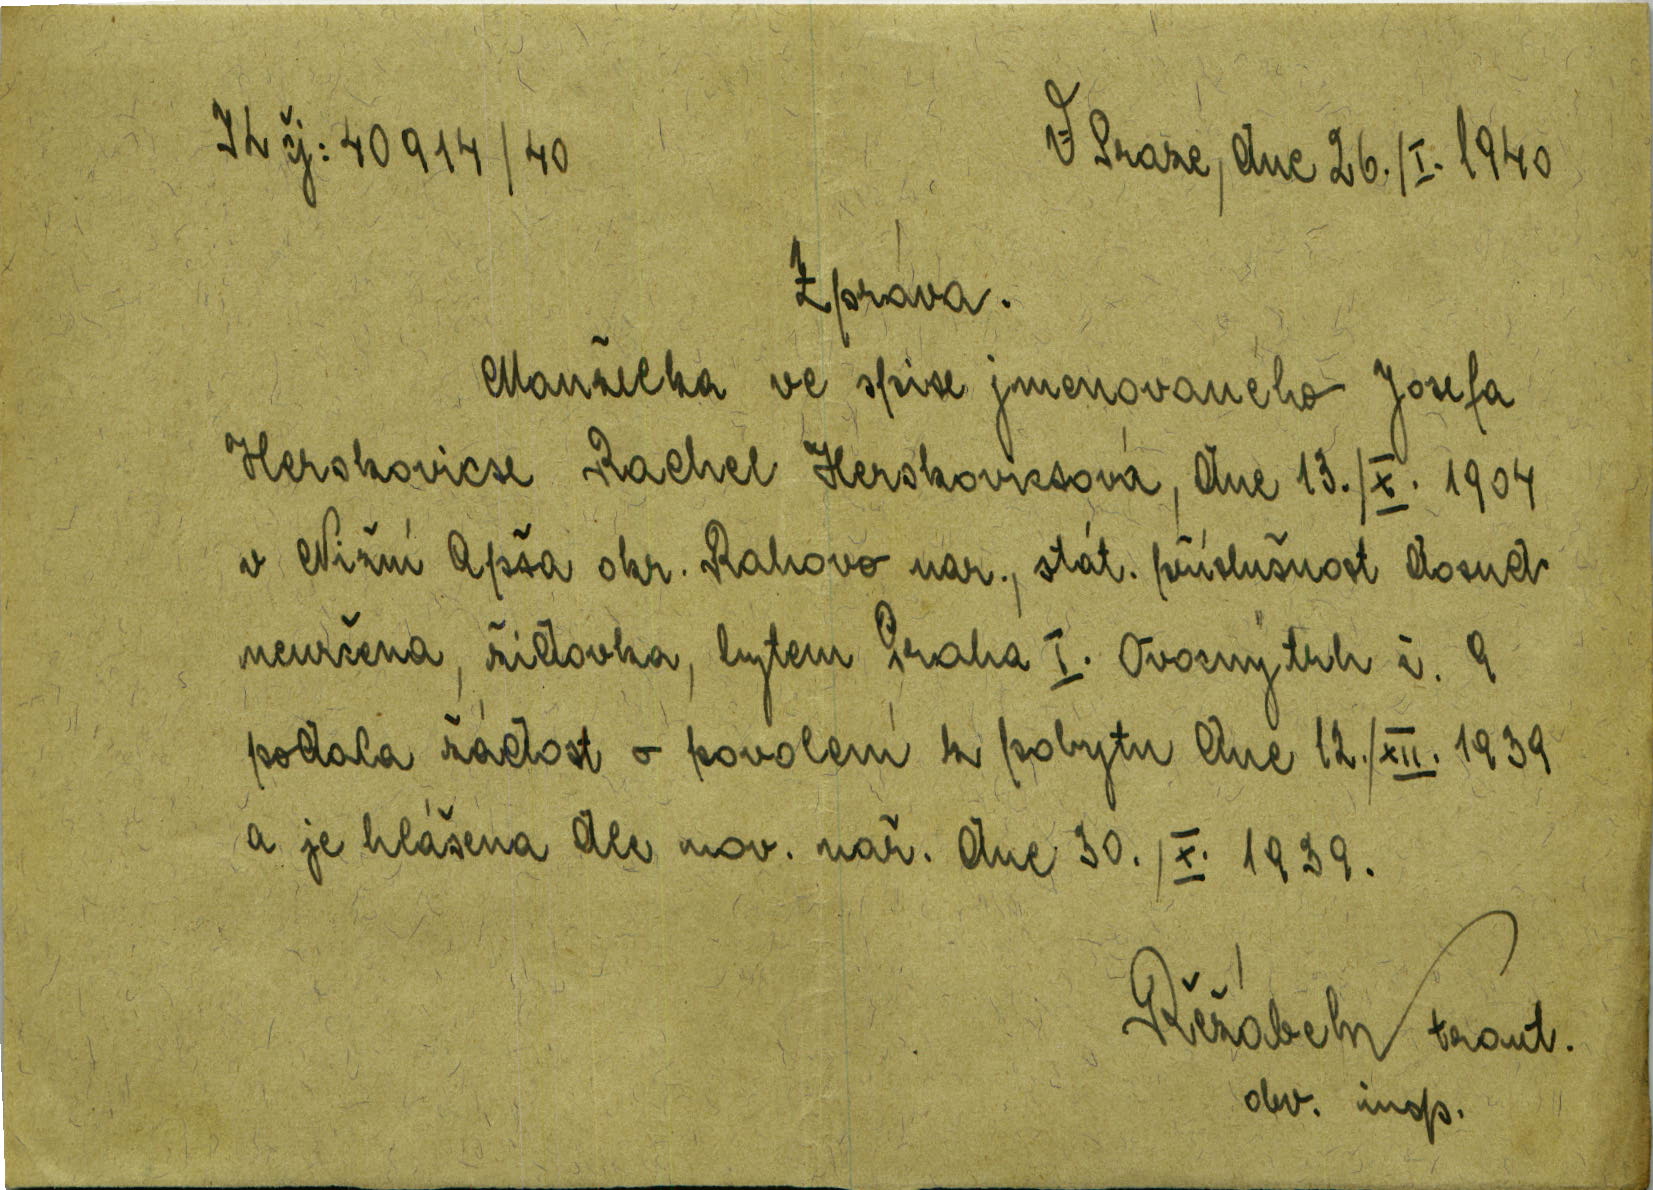 čj: 40914/40
V Praze, dne 26./I. 1940
Zpráva.
Manželka ve spise jmenovaného Josefa
Herskovicse Rachel Herskovicsová, dne 13./X. 1904
v Nižní Apša okr. Rahovo nar., stát. příslušnost dosud
neurčena, židovka, bytem Praha I. Ovocný trh č. 9
podala žádost o povolení k pobytu dne 12./XII. 1939
a je hlášena dle nov. nař. dne 30./X. 1939.
Řežábek
obv. insp.